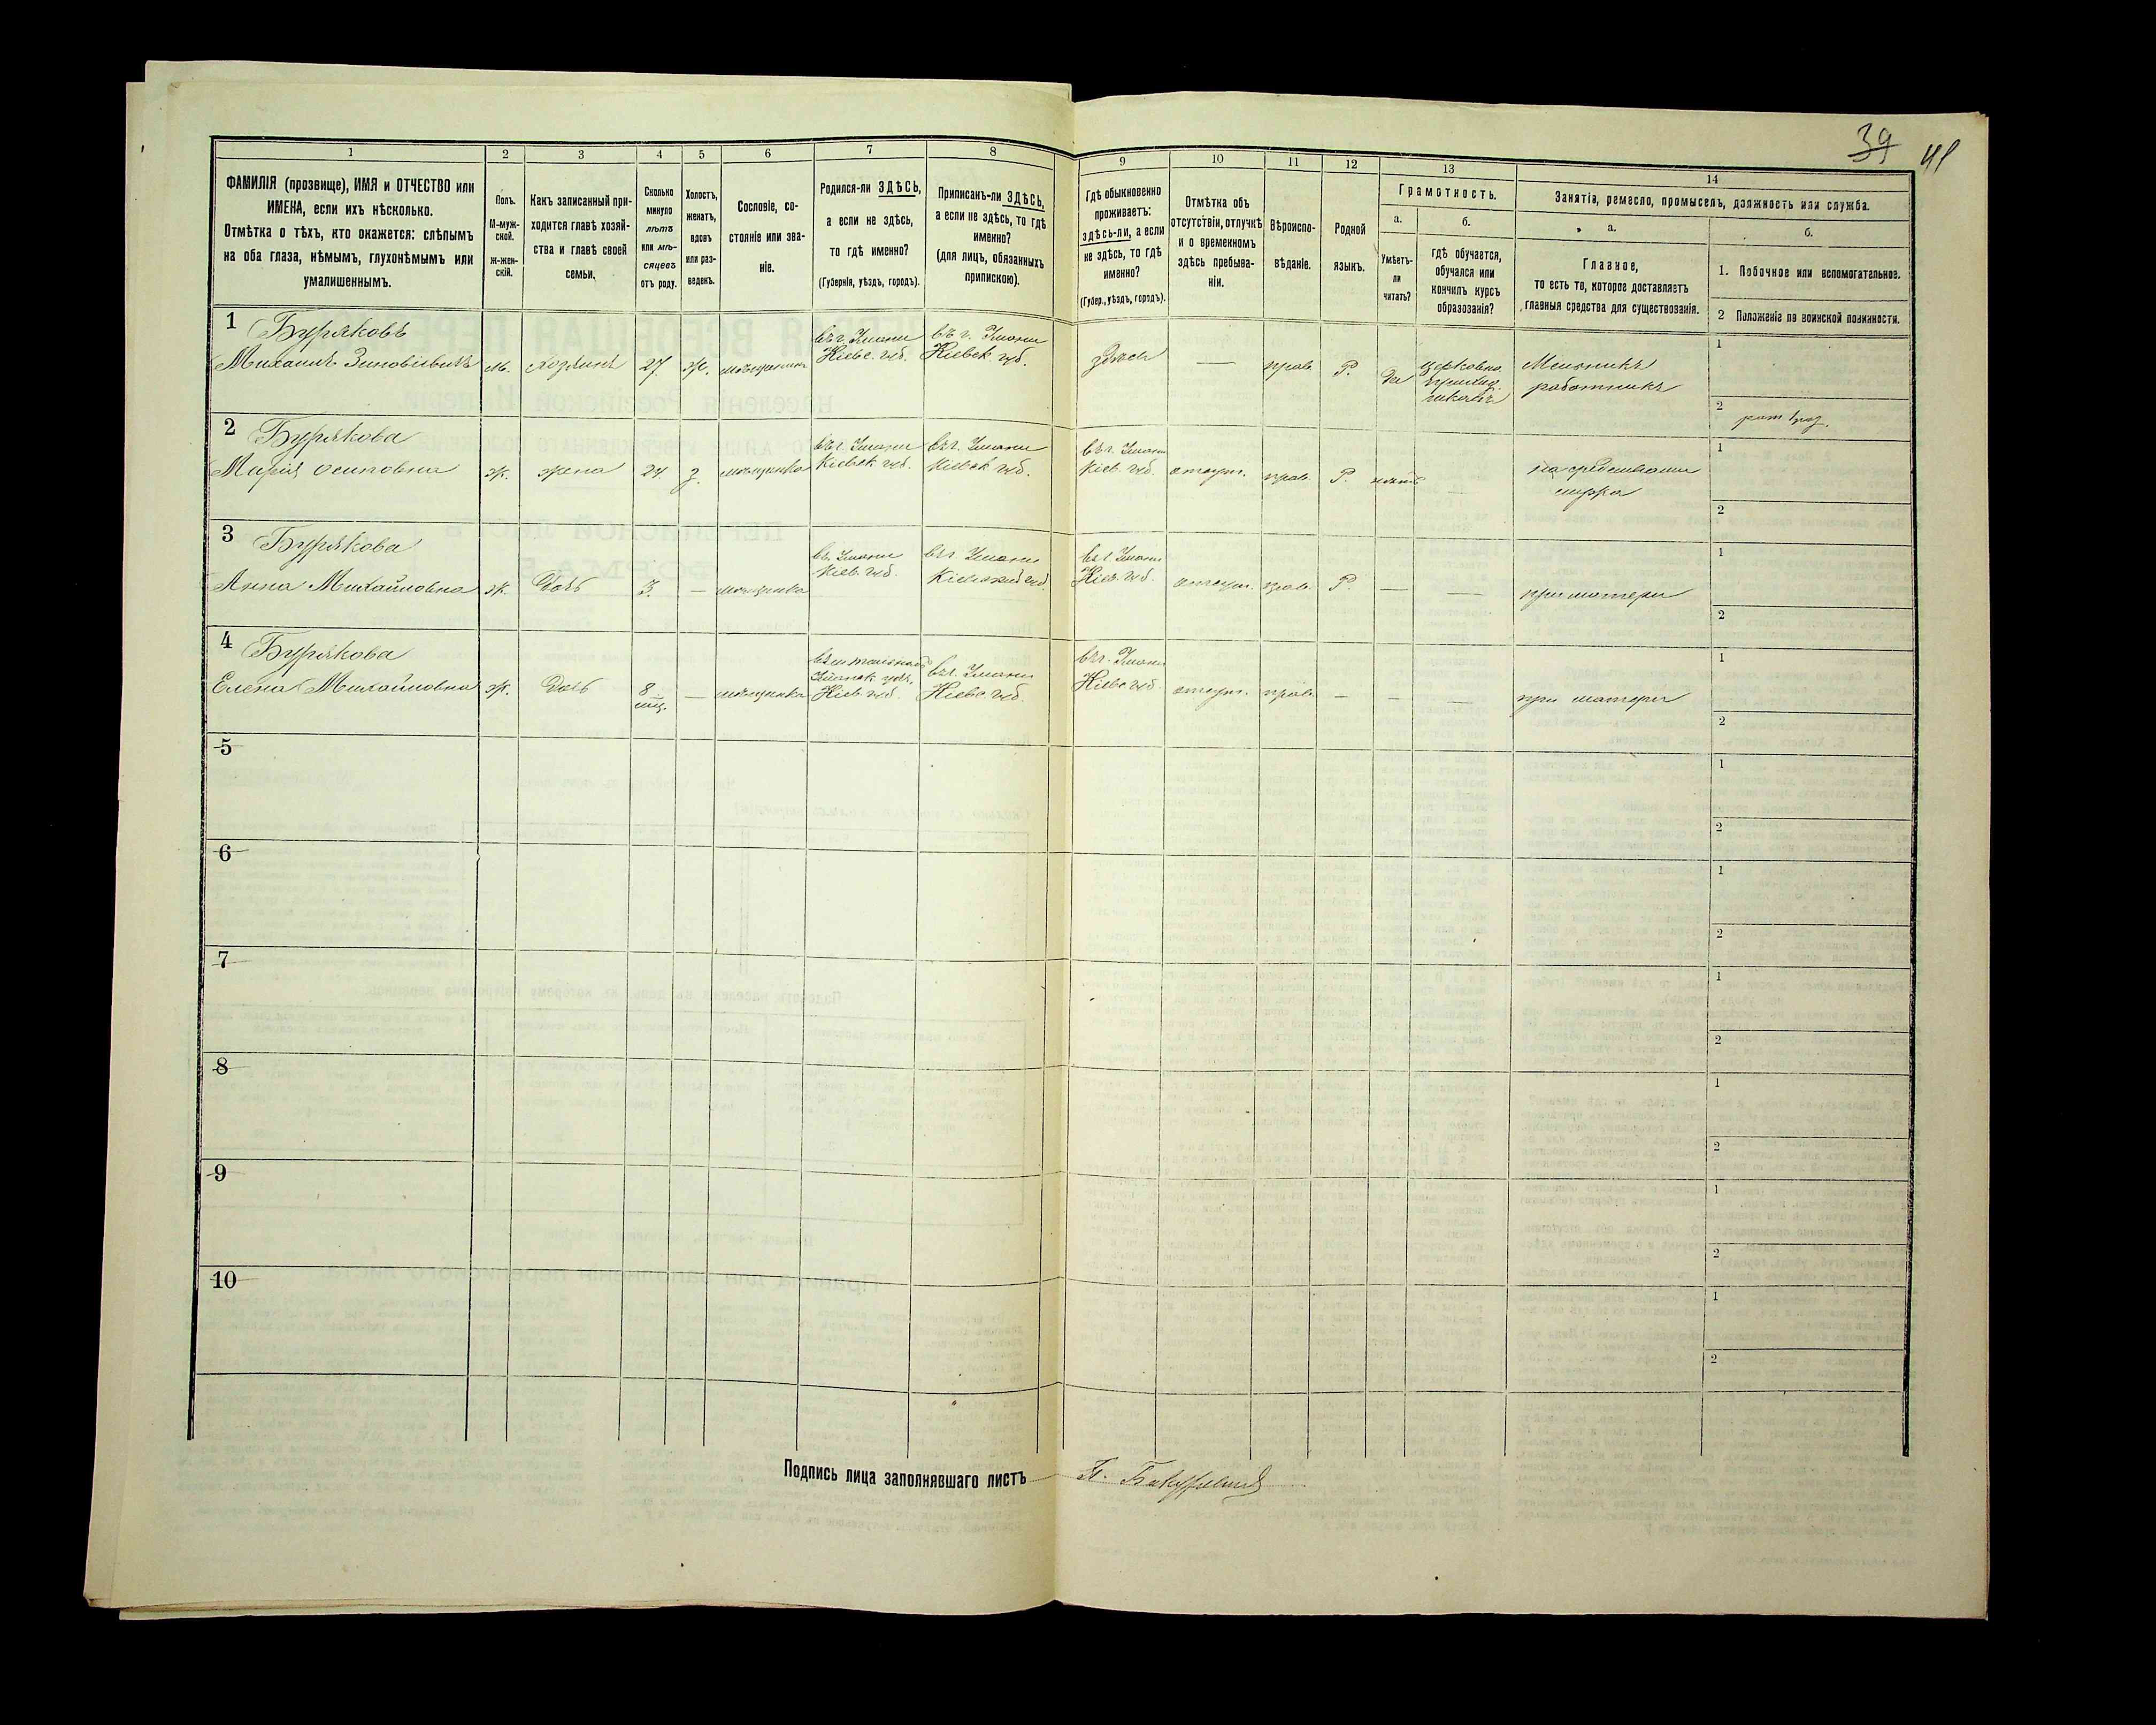 39 41
1 2 3 4 5 6 7 8 9 10 11 12 13 14
ФАМИЛІЯ (прозвище), ИМЯ и ОТЧЕСТВО или
ИМЕНА, если ихъ нѣсколько.
Отмѣтка о тѣхъ, кто окажется: слѣпымъ
на оба глаза, нѣмымъ, глухонѣмымъ или
умалишеннымъ.
Полъ.
М-муж-
ской.
ж-жен-
скій.
Какъ записанный при-
ходится главѣ хозяй-
ства и главѣ своей
семьи.
Сколько
минуло
лѣтъ
или мѣ-
сяцевъ
отъ роду.
Холостъ,
женатъ,
вдовъ
или раз-
веденъ.
Сословіе, со-
стояніе или зва-
ніе.
Родился-ли ЗДѢСЬ,
а если не здѣсь,
то гдѣ именно?
(Губернія, уѣздъ, городъ).
Приписанъ-ли ЗДѢСЬ,
а если не здѣсь, то гдѣ
именно?
(для лицъ, обязанныхъ
припискою).
Гдѣ обыкновенно
проживаетъ:
здѣсь-ли, а если
не здѣсь, то гдѣ
именно?
(Губер., уѣздъ, городъ).
Отмѣтка объ
отсутствіи, отлучкѣ
и о временномъ
здѣсь пребыва-
ніи.
Вѣроиспо-
вѣданіе.
Родной
языкъ.
Грамотность.
а.
Умѣетъ-
ли
читать?
б.
гдѣ обучается,
обучался или
кончилъ курсъ
образозанія?
Занятія, ремесло, промыселъ, должность или служба.
а.
Главное,
то есть то, которое доставляетъ
главныя средства для существованія.
б.
1. Побочное или вспомогательное.
2 Положеніе по воинской повинности.
1 Буряковъ
Михаилъ Зиновіевичъ м. хозяинъ 27. ж. мѣщанинъ
въ г. Умани
Кіевс. губ.
въ г. Умани
Кіевск губ.
здѣсь — прав Р. Да
церковно
приход.
школѣ
работникъ
1
2
2 Бурякова
Марія Осиповна ж. жена 24. з. мѣщанка
въ г. Умани
Кіевск губ.
въ г. Умани
Кіевск губ.
въ г. Умани
Кіев. губ. отсут. прав Р. нѣтъ —
на средствами
мужа
1
2
3 Бурякова
Анна Михайловна ж. Дочь 3. — мѣщанка
въ Умани
Кіев. губ.
въ г Умани
Кіевской губ
въ г Умани
Кіев. губ. отсут. прав. Р. — — при матери
1
2
4 Бурякова
Елена Михайловна ж. Дочь 8
мѣс.
— мѣщанка
Уманск уѣз.
Кіев. губ.
въ г. Умани
Кіевс губ.
въ г. Умани
Кіевс губ. отсут. прав. — — — при матери
1
2
5 1
2
6 1
2
7 1
2
8 1
2
9 1
2
10 1
2
Подпись лица заполнявшаго листъ